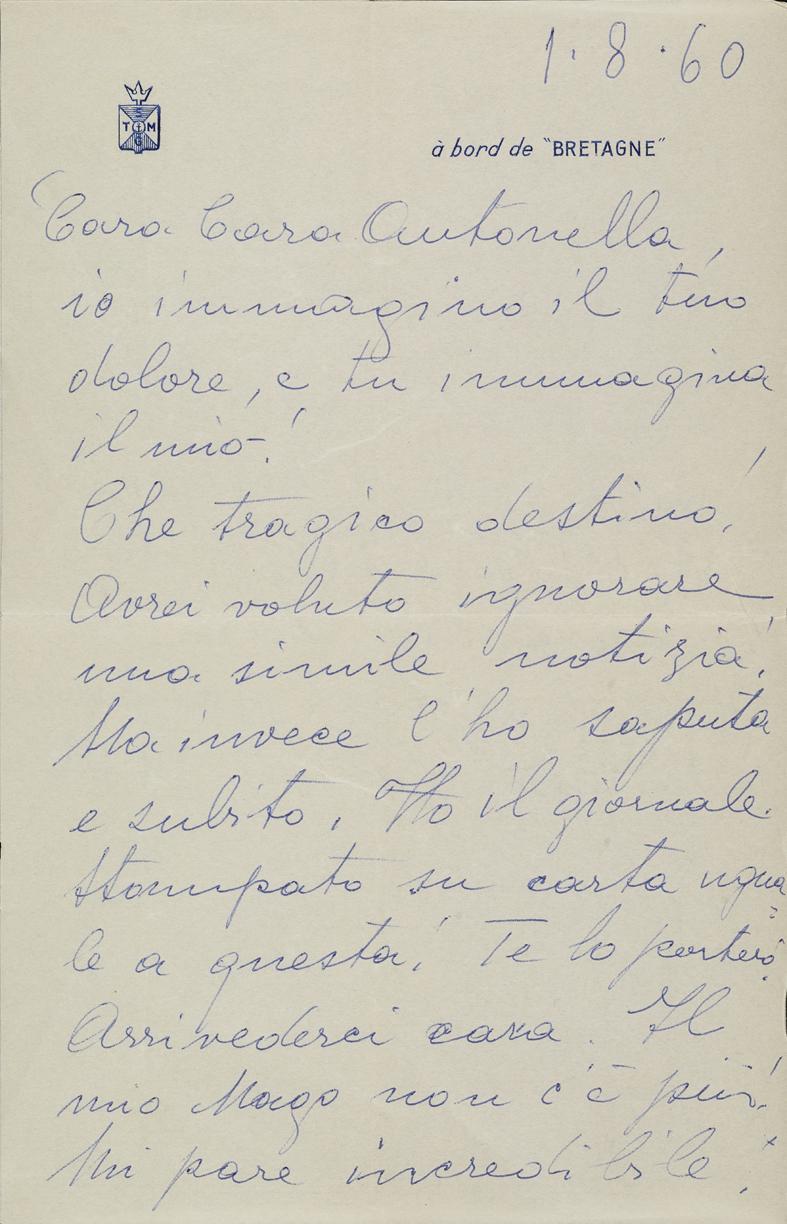 1.8.60
S
T M
G
à bord de "BRETAGNE"
Cara Cara Antonella,
io immagino il tuo
dolore, e tu immagina
il mio!
Che tragico destino!
Avrei voluto ignorare
una simile notizia!
Ma invece l'ho saputa
e subito. Ho il giornale
stampato su carta ugua=
le a questa! Te lo porterò.
Arrivederci cara. Il
mio Mago non c'è più!
Mi pare incredibile!